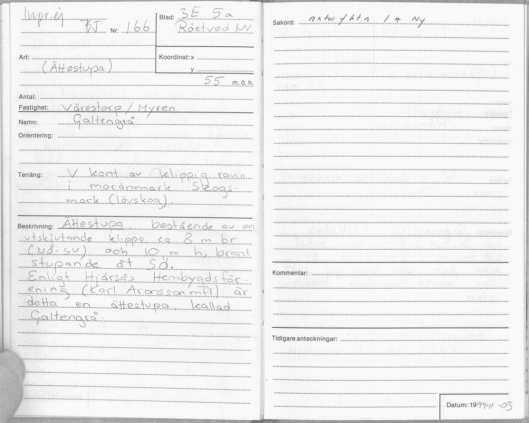 Inpr. ej
Nr: 166
Blad: 3E 5a
Röetved NV
Art:
(Ättestupa)
Koordinat: x
y
55 m.ö.h.
Antal:
Fastighet: Vårestorp / Myren
Namn: Galtengrå
Orientering:
Terräng: V kant av klippig ravin
i moränmark Skogs-
mark (lövskog).
Beskrivning: Ättestupa, bestående av en
utskjutande klippa ca 8 m br
(NO-SV) och 10 m h, brant
stupande åt SÖ.
Enligt Hjärsås Hembygdsför-
ening (Karl Aronsson mfl) är
detta en ättestupa, kallad
Galtengrå.
Sakord: naturföbtn 1 * Ny
Kommentar:
Tidigare anteckningar:
Datum: 1994-11-03